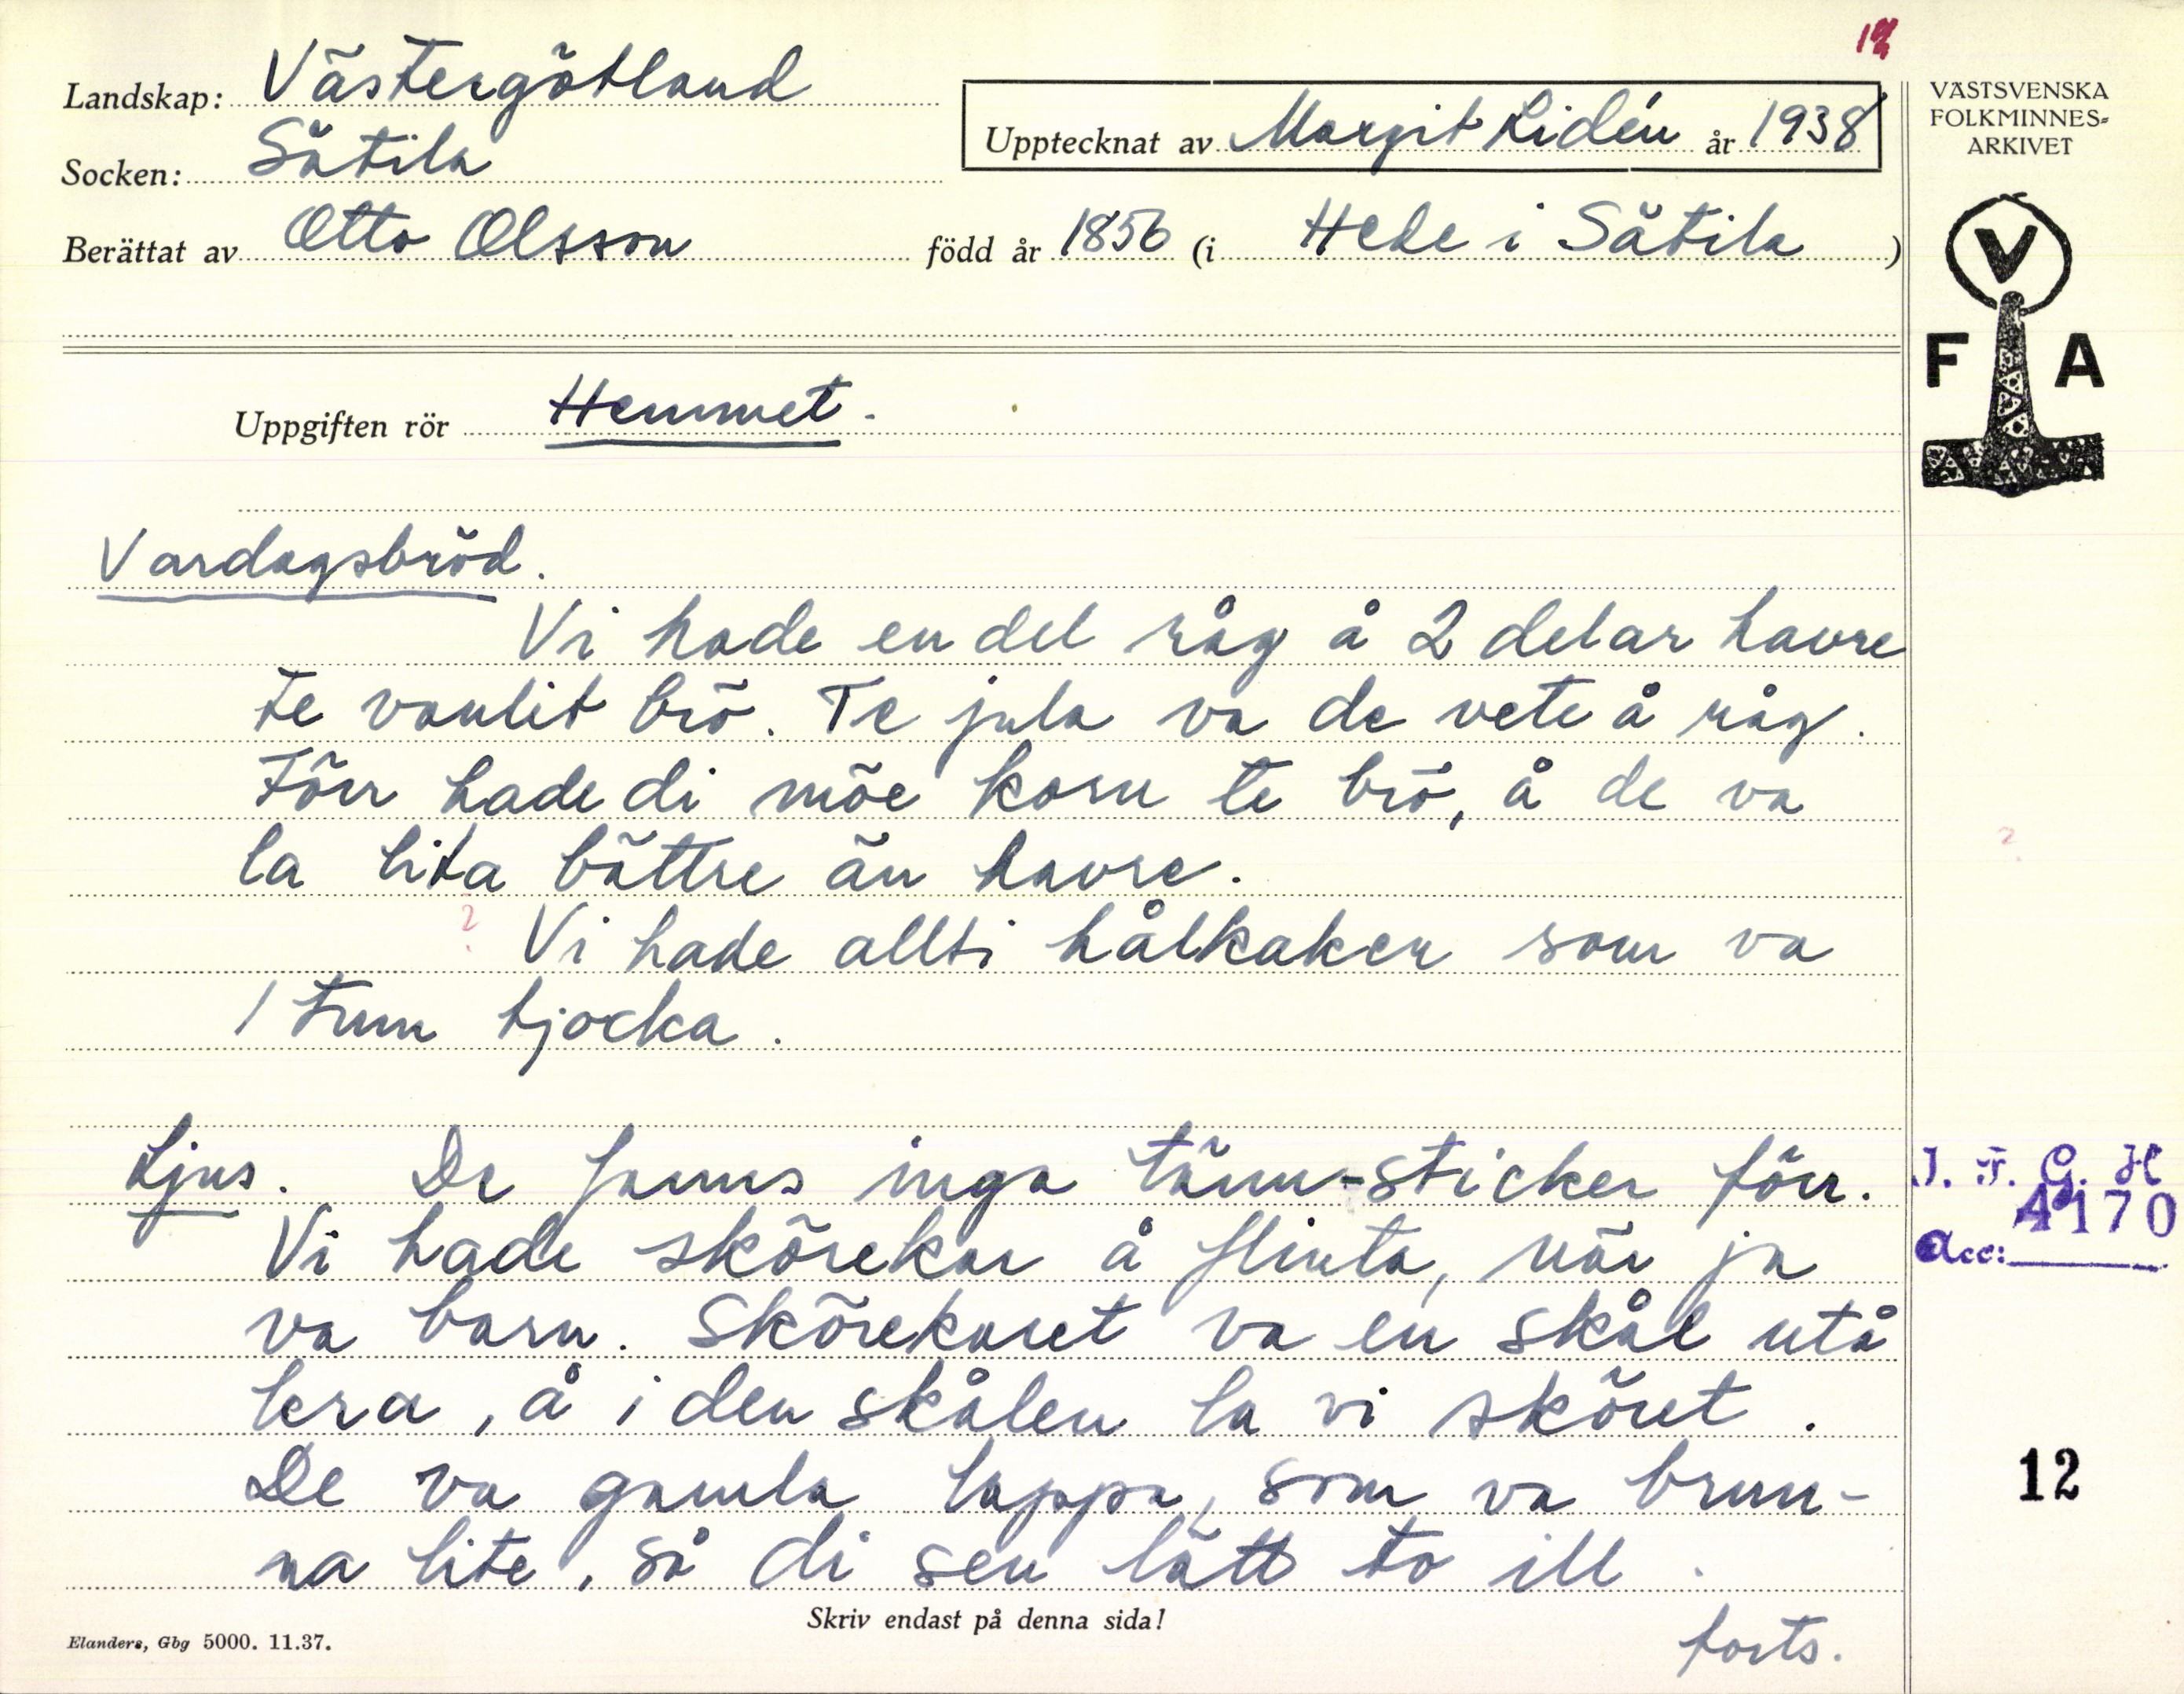 12
Landskap: Västergötland
Socken: Sätila
Upptecknat av Margit Lidén år 1938
Berättat av Otto Olsson född år 1856 (i Hede i Sätila )
VÄSTSVENSKA
FOLKMINNES=
ARKIVET
V
F A
Uppgiften rör Hemmet.
Vardagsbröd.
Vi hade en del råg å 2 delar havre
te vanlit brö. Te jula va de vete å råg.
Förr hade di möe korn te brö, å de va
la lita bättre än havre.
? Vi hade allti hålkaker som va
1 tum tjocka.
?
Ljus. De fanns inga tänn-sticker förr.
Vi hade skörekar å flinta, när ja
va barn. Skörekaret va en skål utå
lera, å i den skålen la vi sköret.
De va gamla lappa, som va brun-
na lite, så di sen lätt to ill.
forts.
I. F. G. H
4170
Acc:
12
Skriv endast på denna sida!
Elanders, Gbg 5000. 11.37.